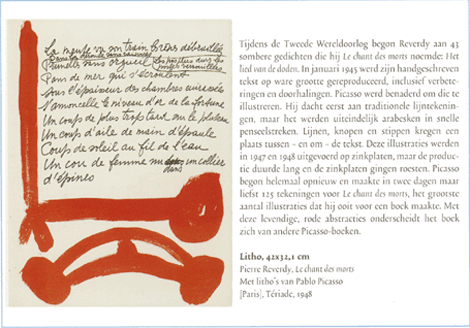 La meute va son train Corons débraillés
Dans la
Prunelles sans orgueil
Pans de mer qui s'écroulent
Sous l'épaisseur des chambres
S'amoncelle le niveau d'or de la fortune
Un coup de plus trop tard sur le plateau
Un coup d'aile de main d'épaule
Coup de soleil au fil de l'eau
Un cou de femme un collier
dans
d'épines
Tijdens de Tweede Wereldoorlog begon Reverdy aan 43
sombere gedichten die hij Le chant des morts noemde: Het
lied van de doden. In januari 1945 werd zijn handgeschreven
tekst op ware grootte gereproduceerd, inclusief verbete-
ringen en doorhalingen. Picasso werd benaderd om die te
illustreren. Hij dacht eerst aan traditionele lijntekenin-
gen, maar het werden uiteindelijk arabesken in snelle
penseelstreken. Lijnen, knopen en stippen kregen een
plaats tussen - en om - de tekst. Deze illustraties werden
in 1947 en 1948 uitgevoerd op zinkplaten, maar de produc-
tie duurde lang en de zinkplaten gingen roesten. Picasso
begon helemaal opnieuw en maakte in twee dagen maar
liefst 125 tekeningen voor Le chant des morts, het grootste
aantal illustraties dat hij ooit voor een boek maakte. Met
deze levendige, rode abstracties onderscheidt het boek
zich van andere Picasso-boeken.
Litho, 42x32,1 cm
Pierre Reverdy, Le chant des morts
Met litho's van Pablo Picasso
[Paris], Tériade, 1948